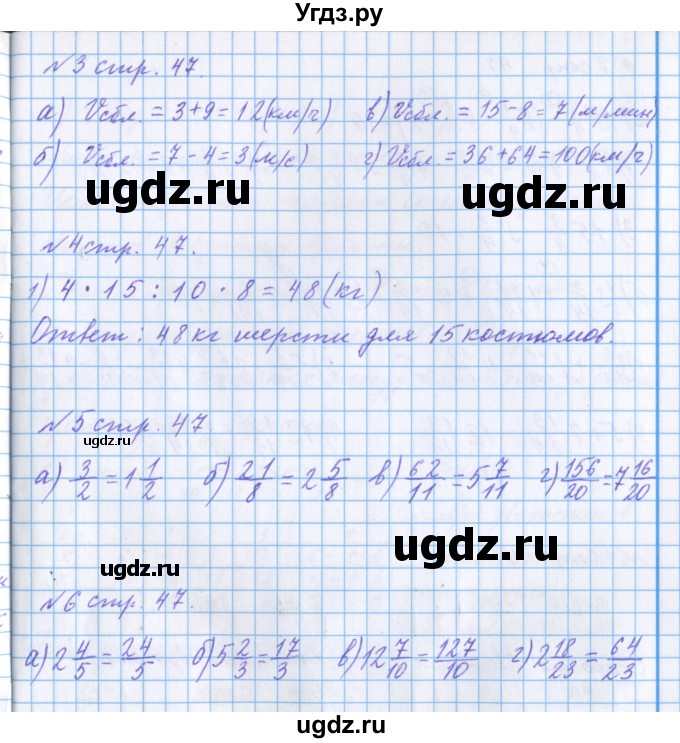 Угдз.ру
№3 стр. 47.
а) Vсбл. = 3+9 = 12(км/ч) в) Vсбл. = 15-8 = 7(м/мин)
б) Vсбл. = 7-4 = 3(м/с) г) Vсбл. = 36+64 = 100(км/ч)
ugdz.ru ugdz.ru
№4 стр. 47.
1) 4 · 15 : 10 · 8 = 48 (кг)
Ответ: 48 кг шерсти для 15 костюмов.
№5 стр. 47.
ugdz.ru
а) 3/2 = 1 1/2 б) 21/8 = 2 5/8 в) 62/11 = 5 7/11 г) 156/20 = 7 16/20
ugdz.ru
ugdz.ru
№6 стр. 47.
а) 2 4/5 = 24/5 б) 5 2/3 = 17/3 в) 12 7/10 = 127/10 г) 2 18/23 = 64/23
ugdz.ru